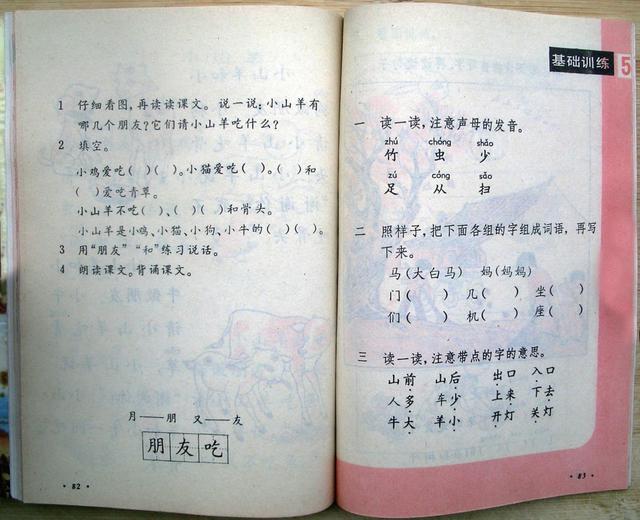 1 仔细看图，再读读课文。说一说：小山羊有
哪几个朋友？它们请小山羊吃什么？
2 填空。
小鸡爱吃（ ）（ ）。小猫爱吃（ ）。（ ）和
（ ）爱吃青草。
小山羊不吃（ ）、（ ）（ ）和骨头。
小山羊是小鸡、小猫、小狗、小牛的（ ）（ ）。
3 用“朋友”“和”练习说话。
4 朗读课文。背诵课文。
月——朋 又——友
朋友吃
·82·
基础训练 5
一 读一读，注意声母的发音。
zhú chóng shǎo
竹 虫 少
zú cóng sǎo
足 从 扫
二 照样子，把下面各组的字组成词语，再写
下来。
马（大白马） 妈（妈妈）
门（ ） 几（ ） 坐（ ）
们（ ） 机（ ） 座（ ）
三 读一读，注意带点的字的意思。
山前 山后 出口 入口
人多 车少 上来 下去
牛大 羊小 开灯 关灯
·83·